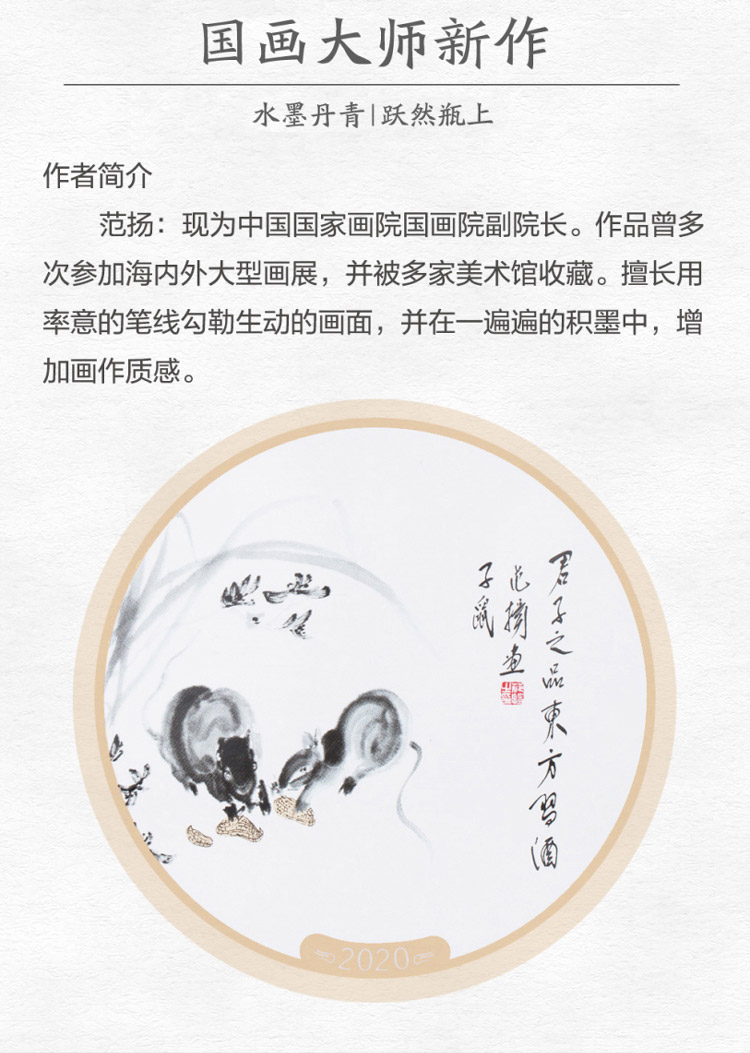 国画大师新作
水墨丹青|跃然瓶上
作者简介
范扬：现为中国国家画院国画院副院长。作品曾多
次参加海内外大型画展，并被多家美术馆收藏。擅长用
率意的笔线勾勒生动的画面，并在一遍遍的积墨中，增
加画作质感。
君子之品東方習酒
范揚画
子鼠
2020